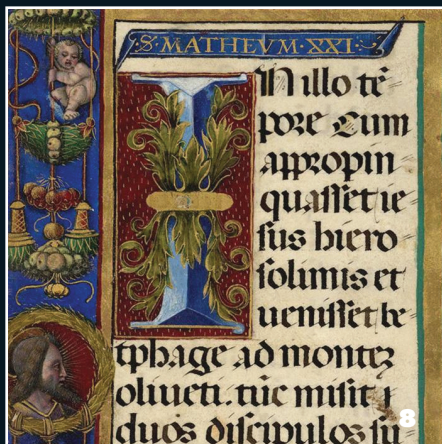 S·MATHEVM·XXI·
IN illo tē
pore Cum
appropin
quasset ie
sus hiero
solimis et
uenisset be
tphage ad montez
oliueti. tūc misit
duos discipulos su
8